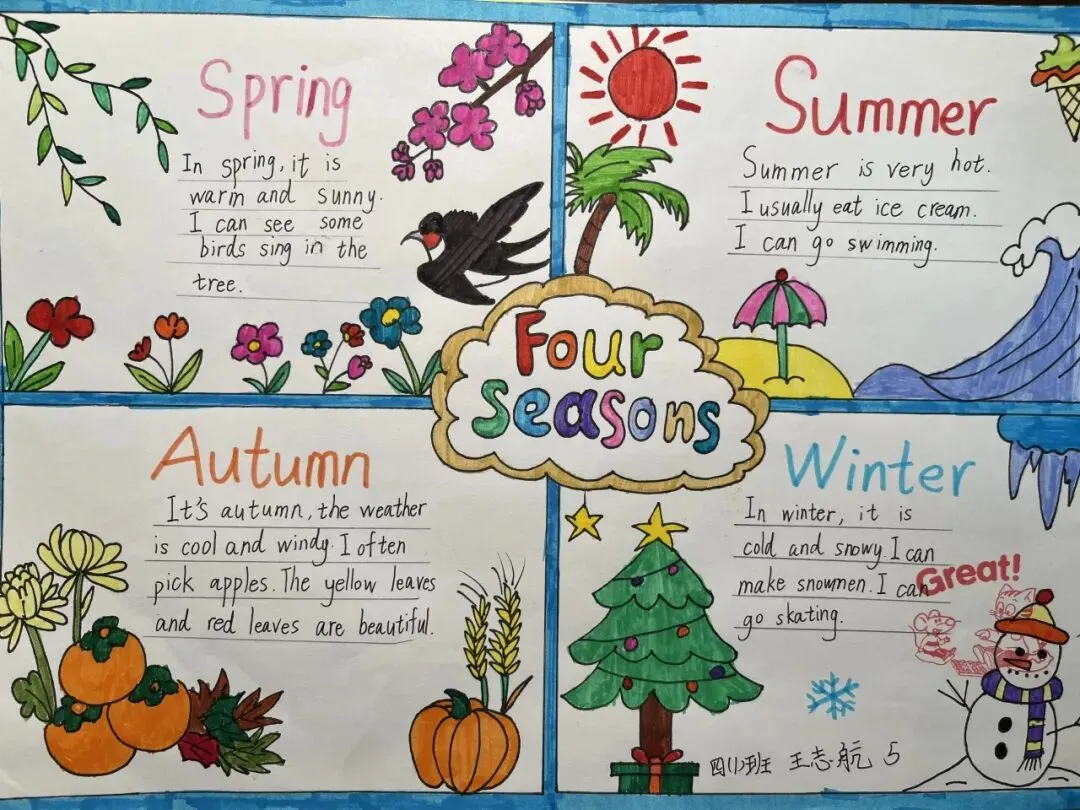 Spring
In spring, it is
warm and sunny.
I can see some
birds sing in the
tree.
Summer
Summer is very hot.
I usually eat ice cream.
I can go swimming.
Four
seasons
Autumn
It's autumn, the weather
is cool and windy. I often
pick apples. The yellow leaves
and red leaves are beautiful.
Winter
In winter, it is
cold and snowy. I can
make snowmen. I can
go skating.
Great!
四(1)班 王志航 5